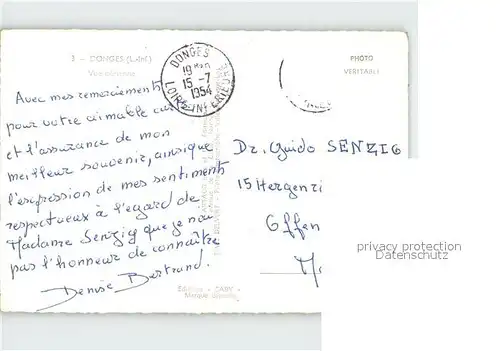 3 - DONGES (L.-Inf.)
Vue aérienne
DONGES
19 H
15 -7
1954
LOIRE-INFERIEURE
PHOTO
VERITABLE
Avec mes remerciements
pour votre aimable
et l'assurance de mon
meilleur souvenir, ainsi que
l'expression de mes sentiments
respectueux à l'égard de
Madame Senzig que je n'ai
pas l'honneur de connaître
Denise Bertrand.
Dr. Guido SENZIG
15 Hergenri
Offen
privacy protection
Datenschutz
Editions - GABY -
Marque déposée